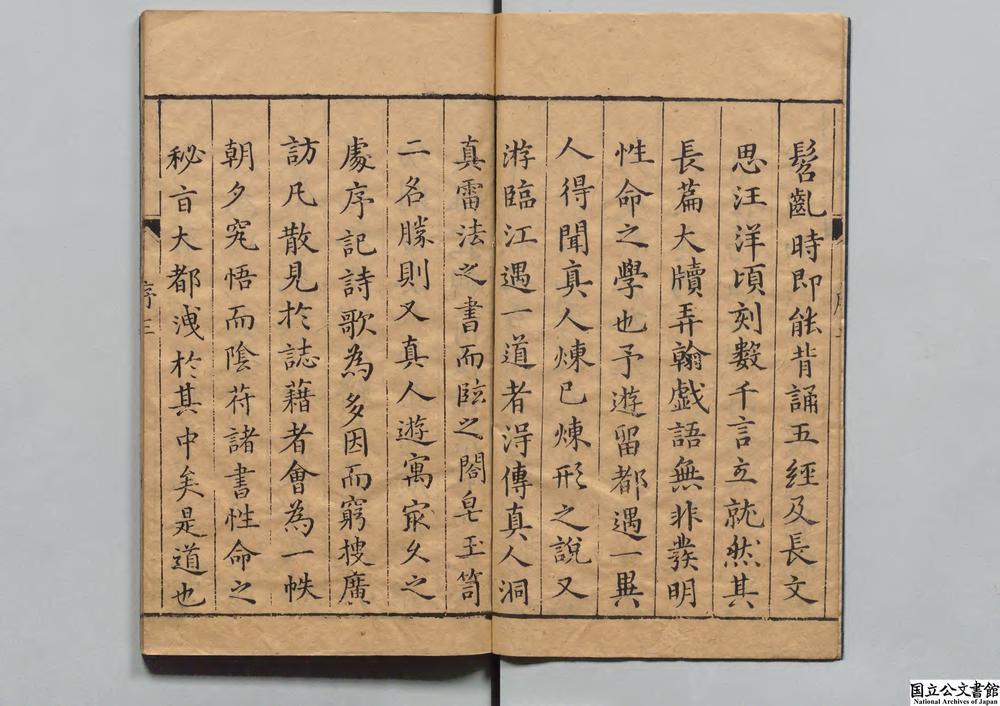 髫齓時即能背誦五經及長文
思汪洋頃刻數千言立就然其
長篇大牘弄翰戲語無非發明
性命之學也予遊留都遇一異
人得聞真人煉己煉形之說又
游臨江遇一道者淂傳真人洞
真雷法之書而臨之閤皂玉笥
二名勝則又真人遊寓㝡久之
處序記詩歌為多因而窮搜廣
訪凡散見於誌藉者會為一帙
朝夕究悟而陰符諸書性命之
秘旨大都洩於其中矣是道也
序三
国立公文書館
National Archives of Japan